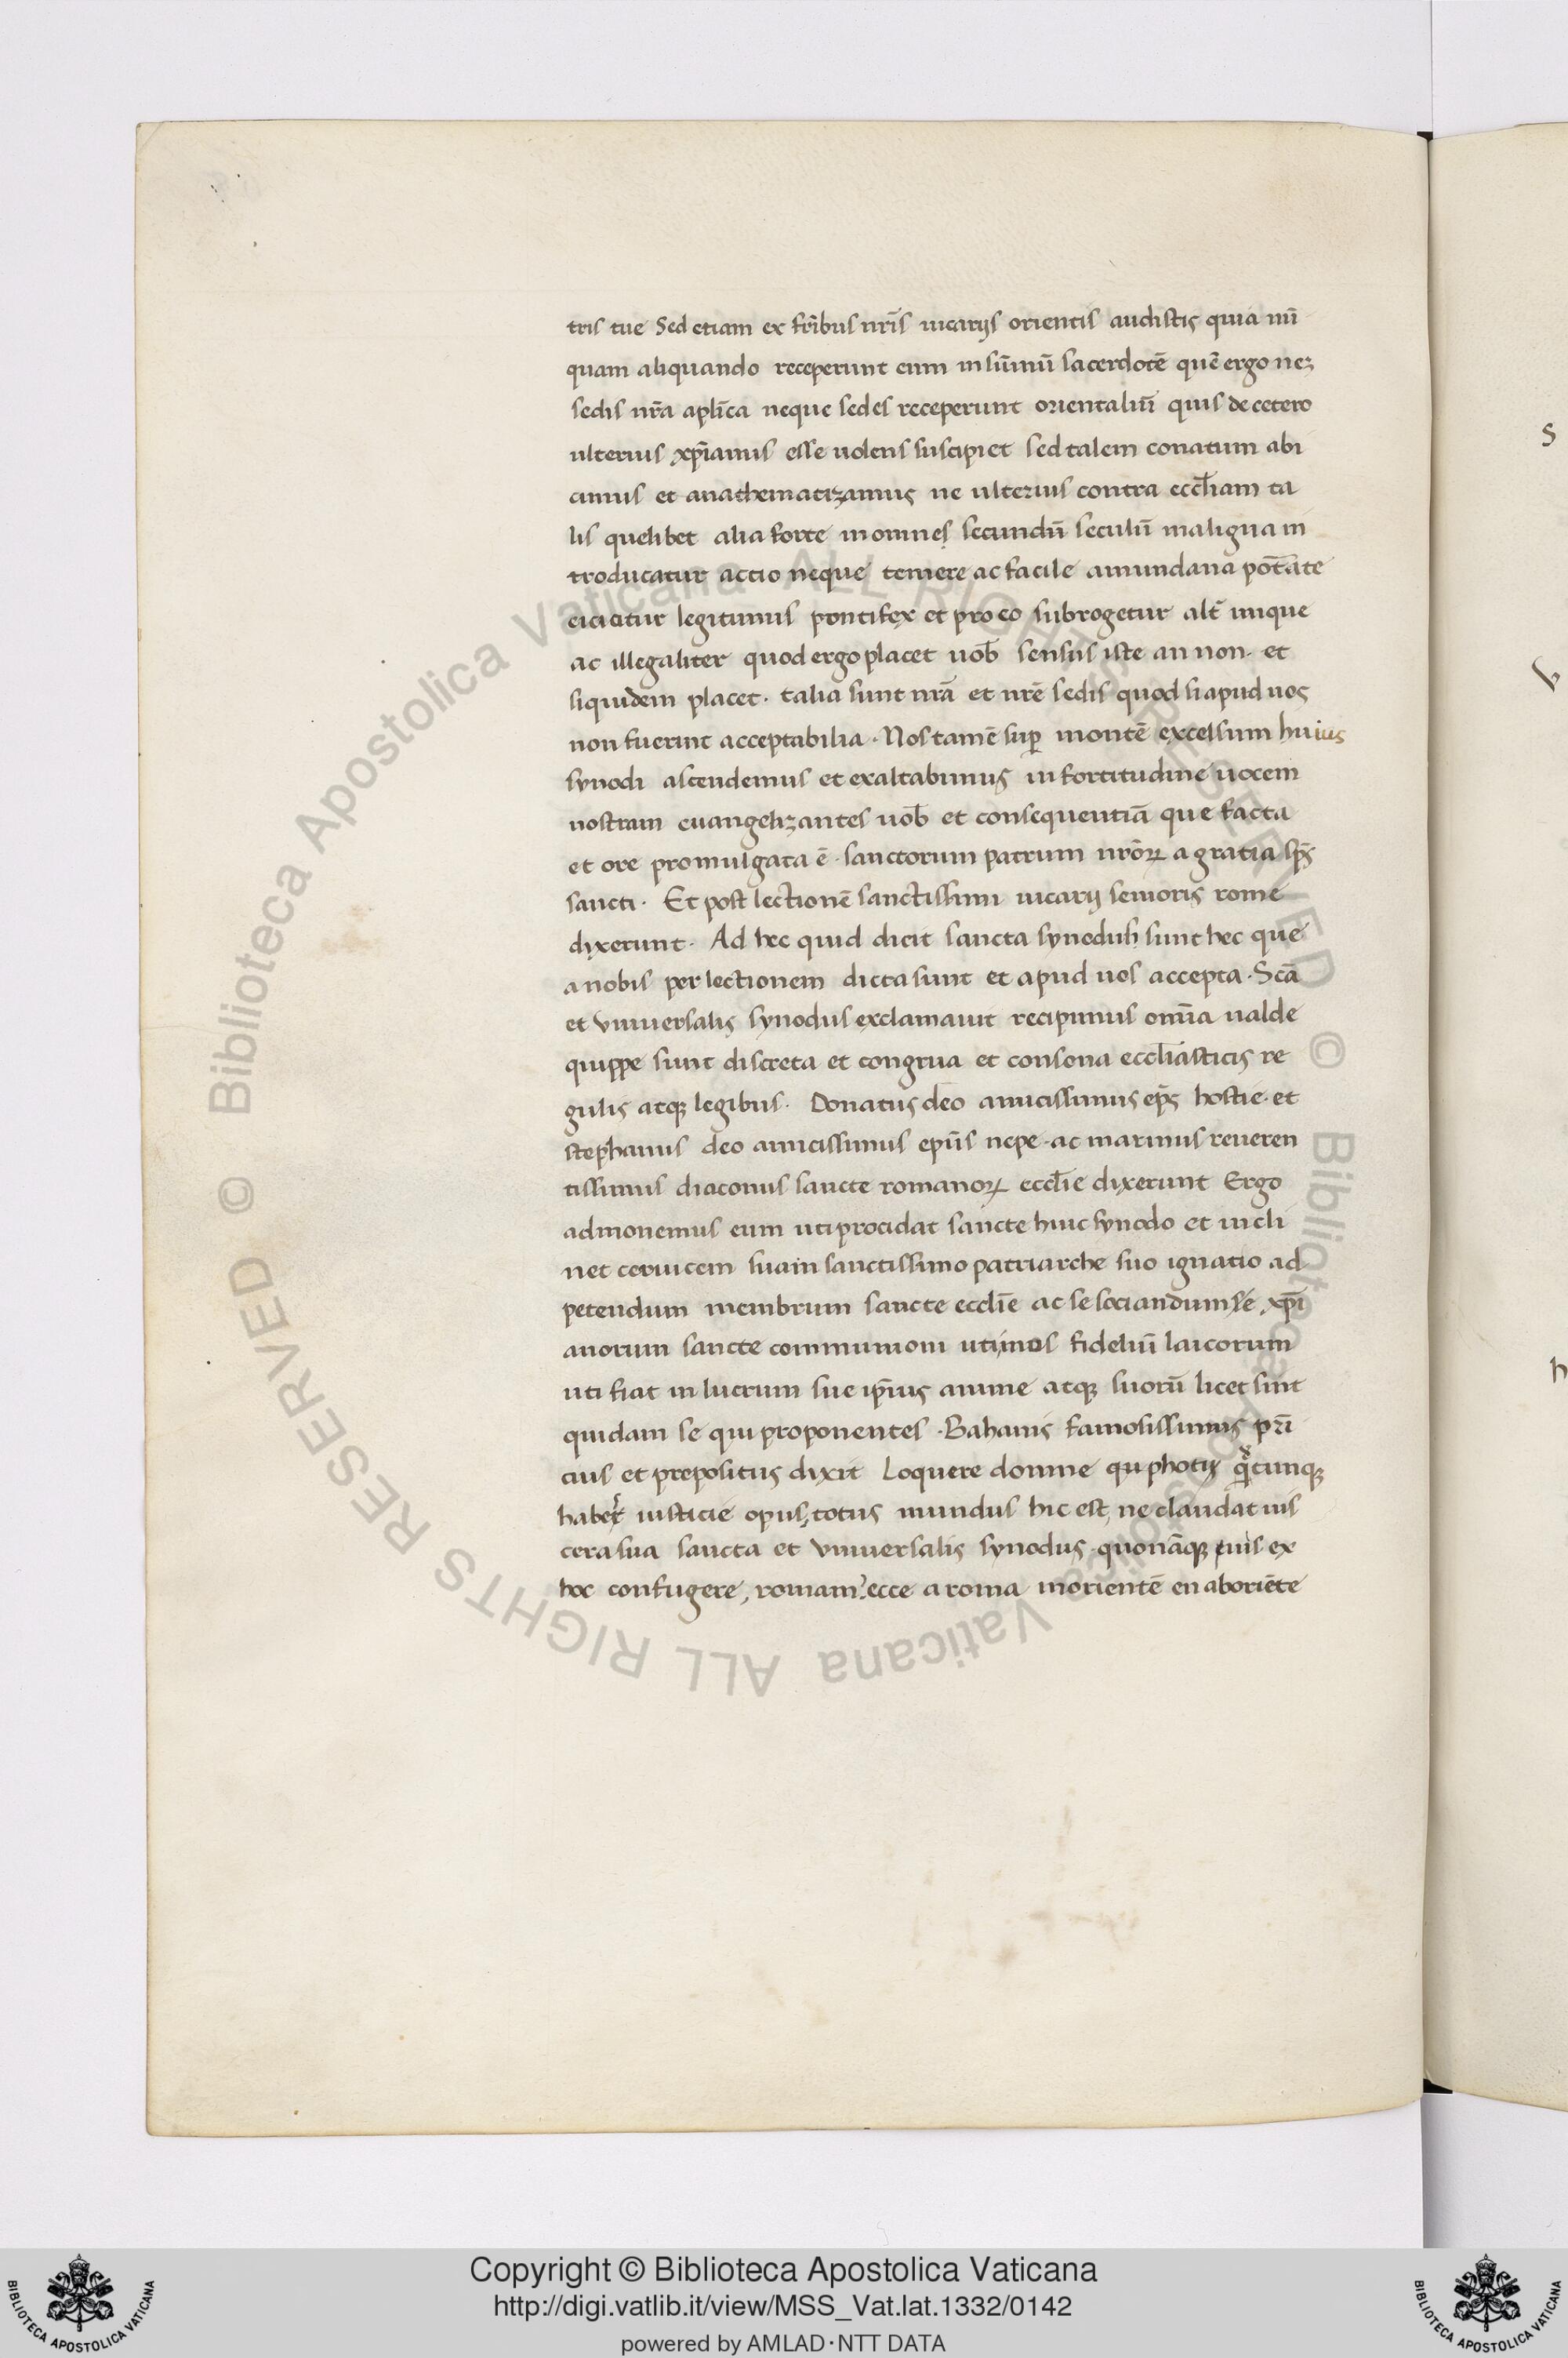 tris tue Sed etiam ex fr̄ibus nr̄is uicarijs orientis audistis quia nū
quam aliquando receperunt eum in sūmū sacerdotē quē ergo neqꝫ
sedis nr̄a aplīca neque sedes receperunt orientaliū quis de cetero
ulterius xp̄ianus esse uolens suscipiet sed talem conatum abi
cimus et anathematizamus ne ulterius contra eccl̄iam ta
lis quelibet alia forte in omnes secundū seculū maligna in
troducatur actio neque temere ac facile a mundana potāte
eiciatur legitimus pontifex et pro eo subrogetur alt̄ inique
ac illegaliter quod ergo placet uob̄ sensus iste an non. et
siquidem placet. talia sunt nrā et nrē sedis quod si apud uos
non fuerint acceptabilia. Nos tamē suꝑ montē excelsum huius
synodi ascendemus et exaltabimus in fortitudine uocem
nostram euangelizantes uob̄ et consequentiā que facta
et ore promulgata ē. sanctorum patrum nrōꝝ a gratia sp̄s
sancti. Et post lectionē sanctissimi uicarij senioris rome
dixerunt. Ad hec quid dicit sancta synodus sunt hec que
a nobis per lectionem dicta sunt et apud uos accepta. Scā
et vniuersalis synodus exclamauit recipimus omīa ualde
quippe sunt discreta et congrua et consona eccl̄iasticis re
gulis atqꝫ legibus. Donatus deo amicissimus ep̄s hostie. et
stephanus deo amicissimus epūs nepe. ac marinus reueren
tissimus diaconus sancte romanoꝝ eccl̄ie dixerunt Ergo
admonemus eum uti procidat sancte huic synodo et incli
net ceruicem suam sanctissimo patriarche suo ignatio ad
petendum membrum sancte eccl̄ie ac se sociandum se, xp̄i
anorum sancte communioni uti mos fideliū laicorum
uti fiat in lucrum sue ip̄ius anime atqꝫ suorū licet sint
quidam se qui proponentes. Bahanis famosissimus prī
cius et prepositus dixit Loquere domne qu photij cunqꝫ
habet iusticie opus, totus mundus hic est, ne claudat uis
cera sua sancta et vniuersalis synodus. quonāqꝫ uis ex
hoc confugere, romam? ecce a roma in orientē en ab oriēte
S
h
© Biblioteca Apostolica Vaticana ALL RIGHTS RESERVED © Biblioteca Apostolica Vaticana ALL RIGHTS RESERVED
Copyright © Biblioteca Apostolica Vaticana
http://digi.vatlib.it/view/MSS_Vat.lat.1332/0142
powered by AMLAD·NTT DATA
BIBLIOTECA APOSTOLICA VATICANA
BIBLIOTECA APOSTOLICA VATICANA